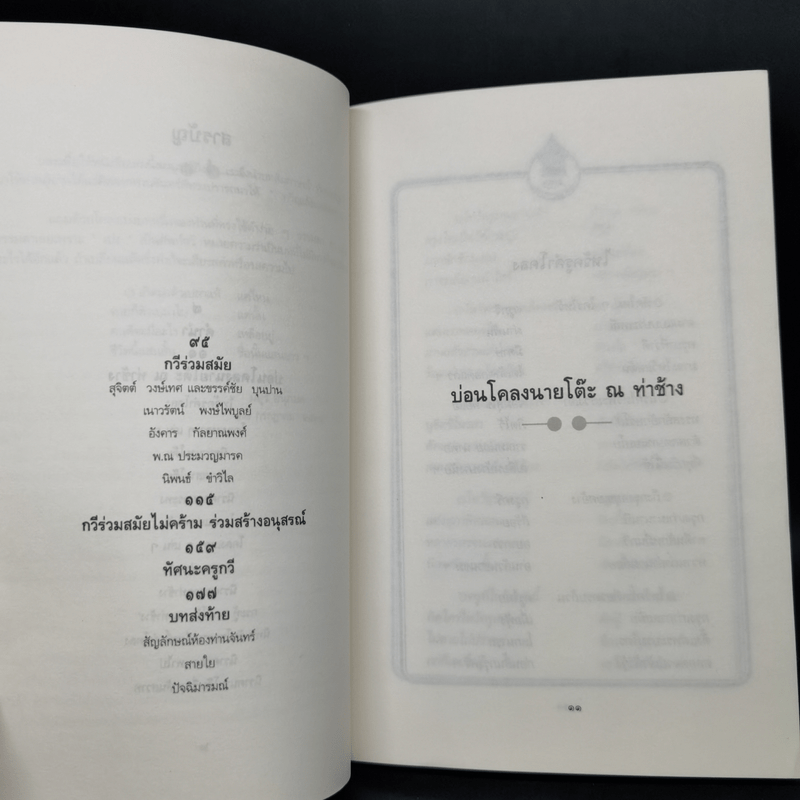 ๙๕
กวีร่วมสมัย
สุจิตต์ วงษ์เทศ และขรรค์ชัย บุนปาน
เนาวรัตน์ พงษ์ไพบูลย์
อังคาร กัลยาณพงศ์
พ.ณ ประมวญมารค
นิพนธ์ ขำวิไล
๑๑๕
กวีร่วมสมัยไม่คร้าม ร่วมสร้างอนุสรณ์
๑๕๙
ทัศนะครูกวี
๑๗๗
บทส่งท้าย
สัญลักษณ์ห้องท่านจันทร์
สายใย
ปัจฉิมารมณ์
บ่อนโคลงนายโต๊ะ ณ ท่าช้าง
๑๑